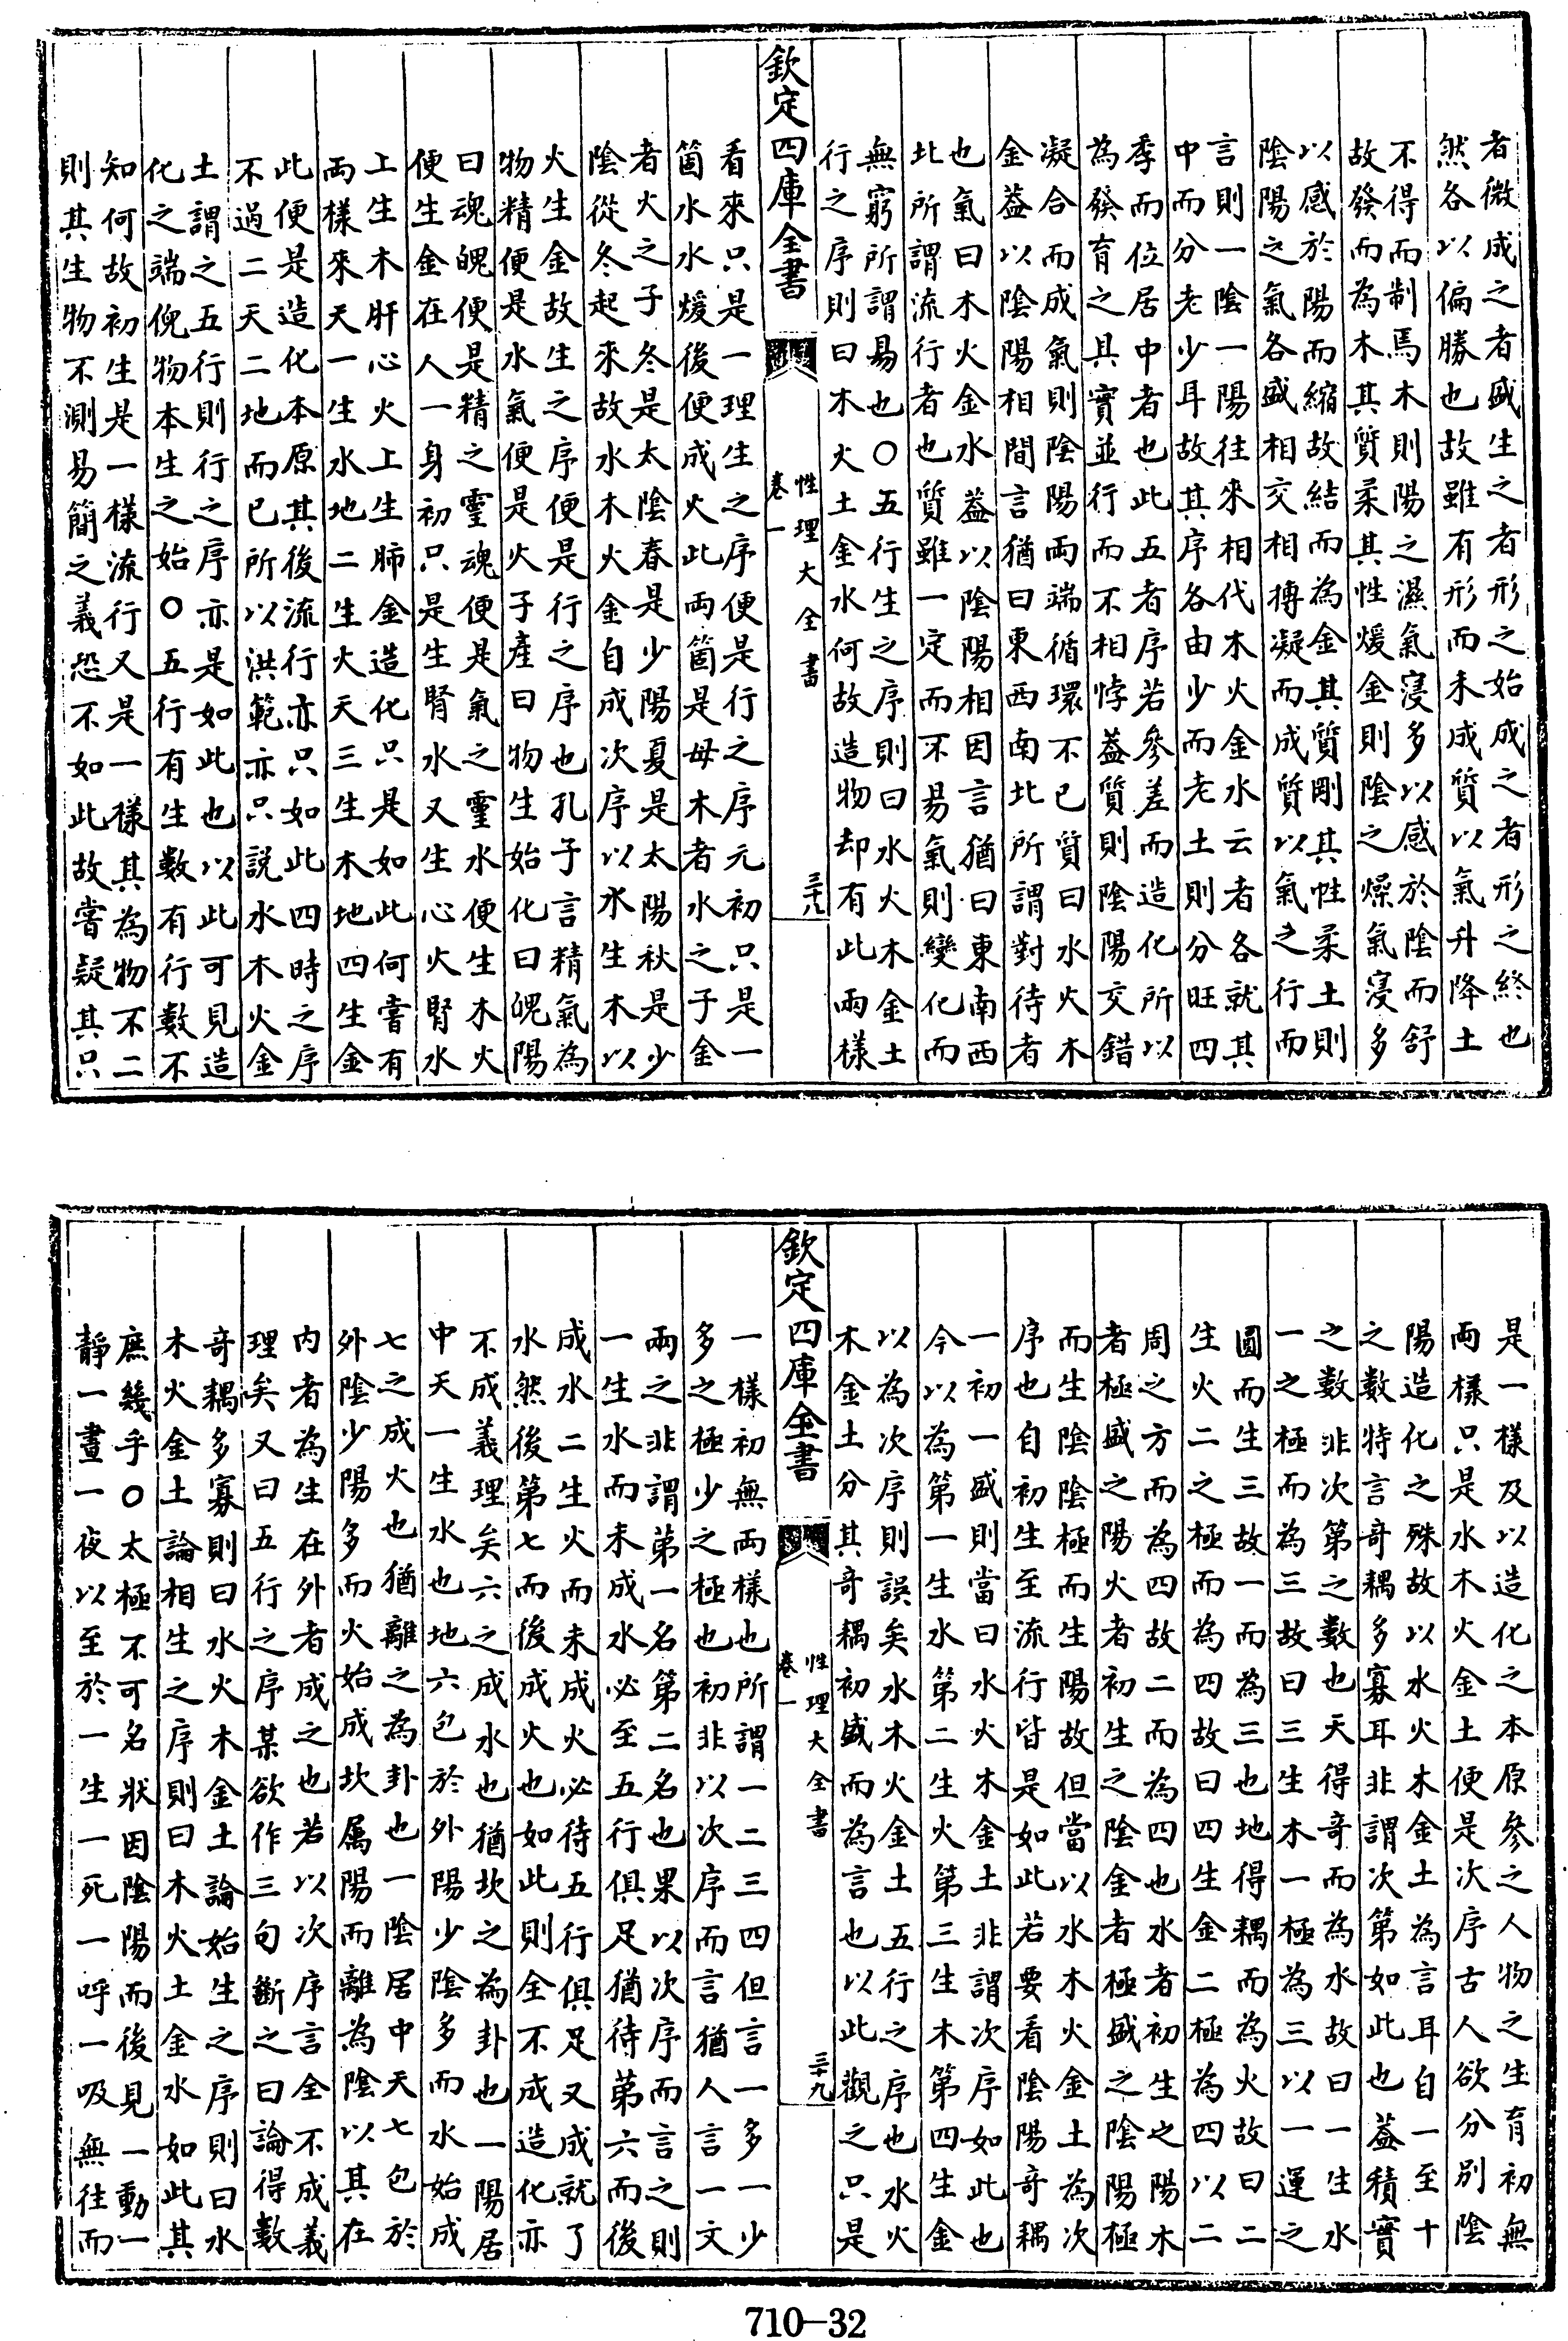 者微成之者盛生之者形之始成之者形之終也
然各以偏勝也故雖有形而未成質以氣升降土
不得而制焉木則陽之濕氣寖多以感於陰而舒
故發而為木其質柔其性煖金則陰之燥氣寖多
以感於陽而縮故結而為金其質剛其性柔土則
陰陽之氣各盛相交相摶凝而成質以氣之行而
言則一陰一陽往來相代木火金水云者各就其
中而分老少耳故其序各由少而老土則分旺四
季而位居中者也此五者序若參差而造化所以
為發育之具實並行而不相悖蓋質則陰陽交錯
凝合而成氣則陰陽兩端循環不已質曰水火木
金蓋以陰陽相間言猶曰東西南北所謂對待者
也氣曰木火金水蓋以陰陽相因言猶曰東南西
北所謂流行者也質雖一定而不易氣則變化而
無窮所謂易也○五行生之序則曰水火木金土
行之序則曰木火土金水何故造物却有此兩樣
欽定四庫全書
性理大全書
卷一
三十八
看來只是一理生之序便是行之序元初只是一
箇水水煖後便成火此兩箇是母木者水之子金
者火之子冬是太陰春是少陽夏是太陽秋是少
陰從冬起來故水木火金自成次序以水生木以
火生金故生之序便是行之序也孔子言精氣為
物精便是水氣便是火子產曰物生始化曰魄陽
曰魂魄便是精之靈魂便是氣之靈水便生木火
便生金在人一身初只是生腎水又生心火腎水
上生木肝心火上生肺金造化只是如此何嘗有
兩樣來天一生水地二生火天三生木地四生金
此便是造化本原其後流行亦只如此四時之序
不過二天二地而已所以洪範亦只説水木火金
土謂之五行則行之序亦是如此也以此可見造
化之端倪物本生之始○五行有生數有行數不
知何故初生是一樣流行又是一樣其為物不二
則其生物不測易簡之義恐不如此故嘗疑其只
是一樣及以造化之本原參之人物之生育初無
兩樣只是水木火金土便是次序古人欲分別陰
陽造化之殊故以水火木金土為言耳自一至十
之數特言奇耦多寡耳非謂次第如此也蓋積實
之數非次第之數也天得奇而為水故曰一生水
一之極而為三故曰三生木一極為三以一運之
圓而生三故一而為三也地得耦而為火故曰二
生火二之極而為四故曰四生金二極為四以二
周之方而為四故二而為四也水者初生之陽木
者極盛之陽火者初生之陰金者極盛之陰陽極
而生陰陰極而生陽故但當以水木火金土為次
序也自初生至流行皆是如此若要看陰陽奇耦
一初一盛則當曰水火木金土非謂次序如此也
今以為第一生水第二生火第三生木第四生金
以為次序則誤矣水木火金土五行之序也水火
木金土分其奇耦初盛而為言也以此觀之只是
欽定四庫全書
性理大全書
卷一
三十九
一樣初無兩樣也所謂一二三四但言一多一少
多之極少之極也初非以次序而言猶人言一文
兩之非謂第一名第二名也果以次序而言之則
一生水而未成水必至五行俱足猶待第六而後
成水二生火而未成火必待五行俱足又成就了
水然後第七而後成火也如此則全不成造化亦
不成義理矣六之成水也猶坎之為卦也一陽居
中天一生水也地六包於外陽少陰多而水始成
七之成火也猶離之為卦也一陰居中天七包於
外陰少陽多而火始成坎屬陽而離為陰以其在
内者為生在外者成之也若以次序言全不成義
理矣又曰五行之序某欲作三句斷之曰論得數
奇耦多寡則曰水火木金土論始生之序則曰水
木火金土論相生之序則曰木火土金水如此其
庶幾乎○太極不可名狀因陰陽而後見一動一
靜一晝一夜以至於一生一死一呼一吸無往而
710-32